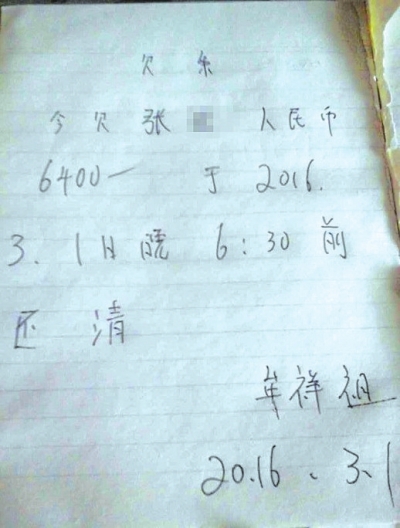 欠条
今欠张 人民币
6400一 于 2016.
3.1日晚 6:30前
还清
牟祥祖
2016、3、1